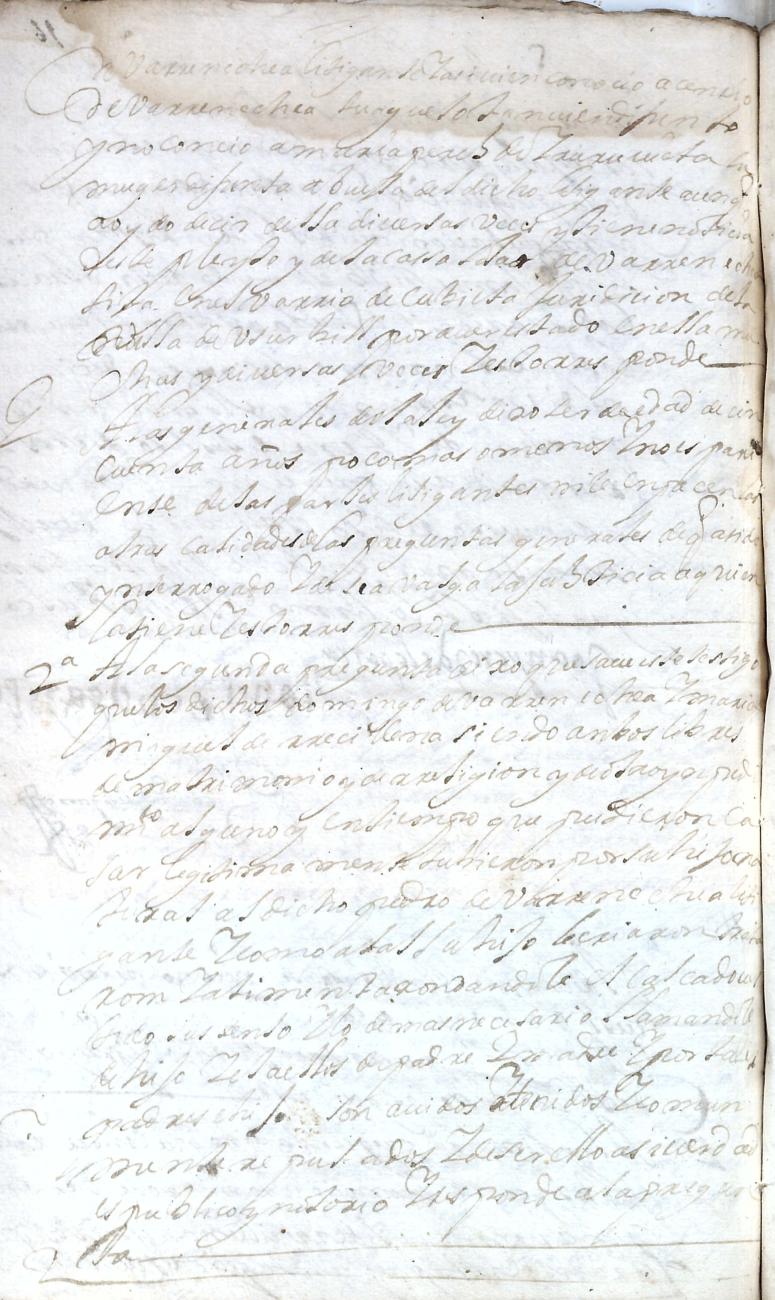 de Varrenechea litigante Tasimien conocio a
de Varrenechea su aguelo tamvien difunto
y no conocio a maria perez de Yruru la
muger difunta abuela del dicho litigante aunq
a oydo decir della diversas veces y tiene noticia
deste pleyto y de la cassa solar de Varrenechea
sita en el varrio de Cubieta Juridicion de la
Villa de Usurbill por aver estado en ella mu
chas y diversas veces Y esto rresponde
A las generales de la ley dixo ser de edad de cin
cuenta años poco mas o menos Y no es pari
ente de las partes litigantes ni le enpacen las
otras calidades de las preguntas generales de q a sido
ynterrogado Y desea valga la Justicia a quien
la tiene Y esto rresponde
2ª A la segunda pregunta dixo que save este testigo
que los dichos Domingo de Varrenechea Y maria
miguel de rrecidena siendo anbos libres
de matrimonio y de rreligion y de otro ynpedi
mto alguno y en tienpo que pudieron ca
sar legitimamente tubieron por su hijo na
tural al dicho pedro de Varrenechea liti
gante Y como a tal su hijo le criaron
ron Y alimentaron dandole el calçado ves
tido sustento Y lo demas necesario llamandole
de hijo Y el a ellos de padre Y madre Y por tales
padres e hijo son avidos Y tenidos Y comun
mente rreputados Y de ser ello asi verdad
es publico y notorio Y rresponde a la pregun
ta